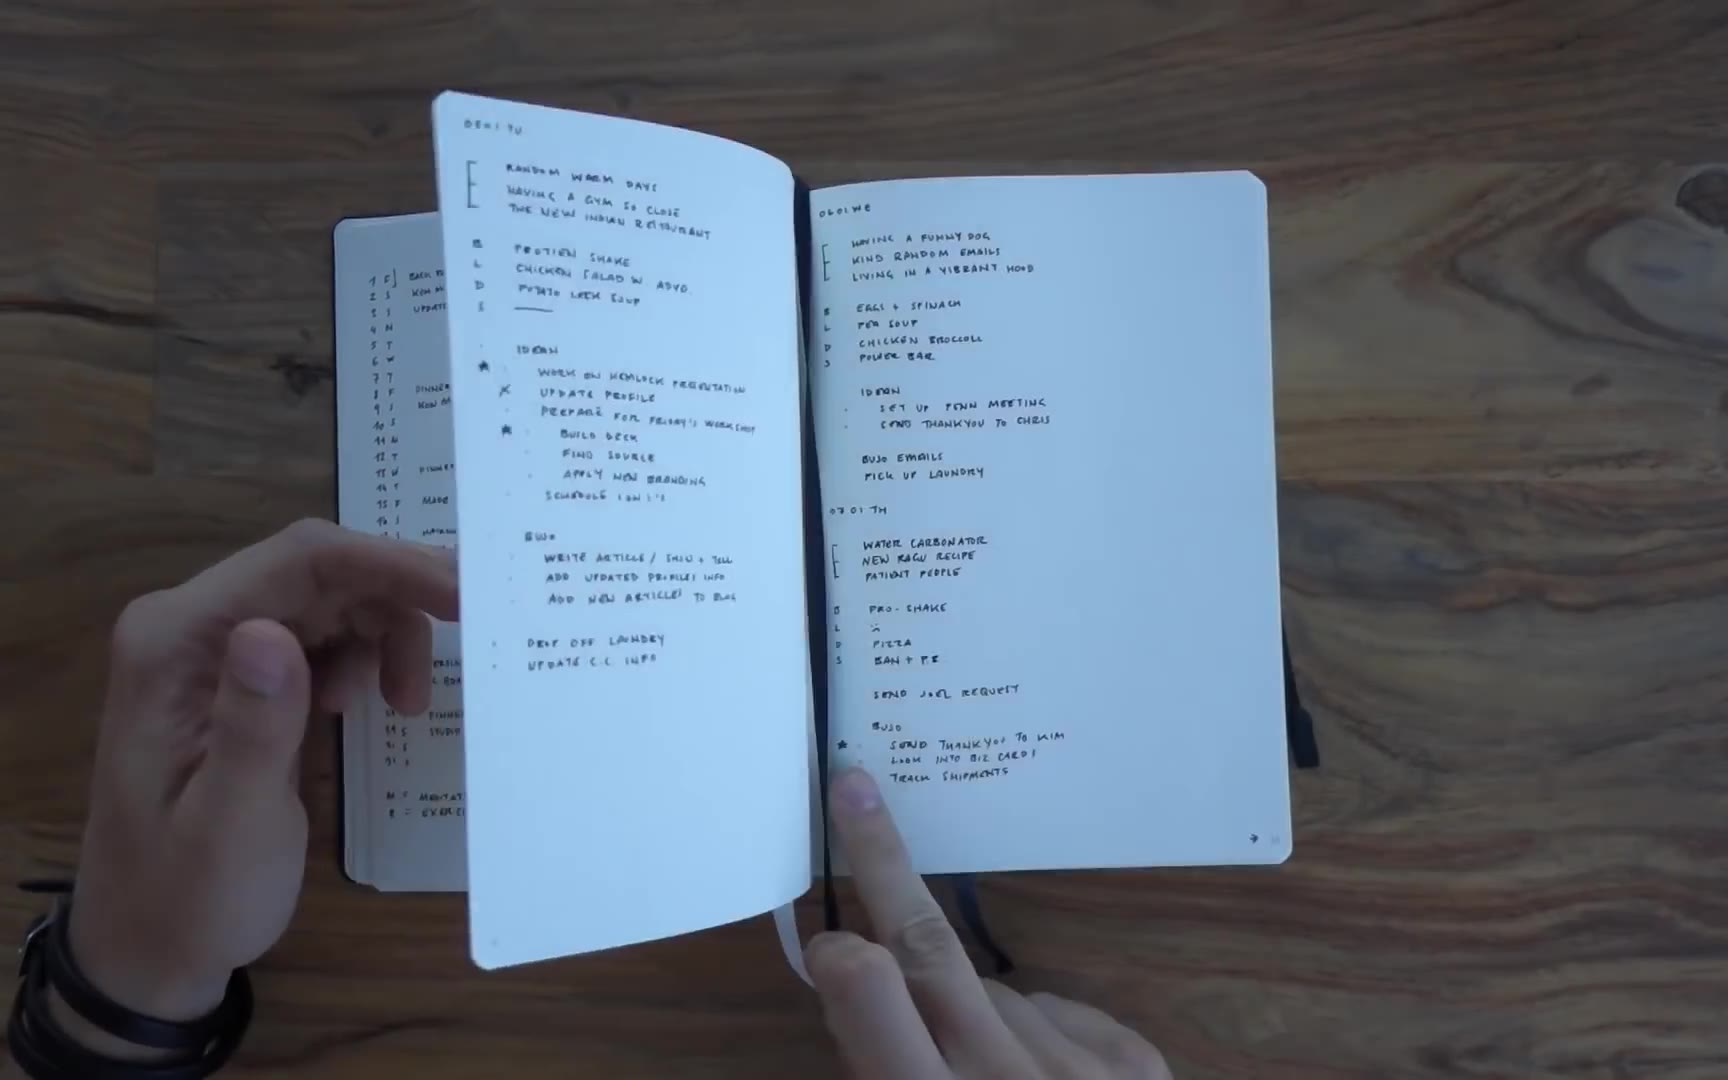 1 F] BACK TO
2 S KON
3 S UPDATE
4 M
5 T
6 W
7 T
8 F DINNER
9 S KON
10 S
11 M
12 T
13 W DINNER
14 T
15 F MADE
16 S
DINNER
STUDIO
M = MEDITAT
E = EXERCI
TU
RANDOM WARM DAYS
HAVING A GYM SO CLOSE
THE NEW INDIAN RESTAURANT
B PROTIEN SHAKE
L CHICKEN SALAD W AOVO.
D POTATO LEEK SOUP
S
IDEAN
★ · WORK ON HEMLOCK PRESENTATION
X UPDATE PROFILE
· PREPARE FOR FRIDAY'S WORKSHOP
★ · BUILD DECK
· FIND SOURCE
· APPLY NEW BRANDING
· SCHEDULE 1 ON 1'S
BUJO
· WRITE ARTICLE / SHOW + TELL
· ADD UPDATED PROFILES INFO
· ADD NEW ARTICLES TO BLOG
· DROP OFF LAUNDRY
· UPDATE C.C. INFO
06 01 WE
HAVING A FUNNY DOG
KIND RANDOM EMAILS
LIVING IN A VIBRANT HOOD
B EGGS + SPINACH
L PEA SOUP
D CHICKEN BROCCOLI
S POWER BAR
IDEAN
· SET UP PENN MEETING
· SEND THANKYOU TO CHRIS
BUJO EMAILS
PICK UP LAUNDRY
07 01 TH
WATER CARBONATOR
NEW RAGU RECIPE
PATIENT PEOPLE
B PRO-SHAKE
L
D PIZZA
S BAN + P.B
SEND JOEL REQUEST
BUJO
★ · SEND THANKYOU TO KIM
· LOOK INTO BIZ CARDS
TRACK SHIPMENTS
→